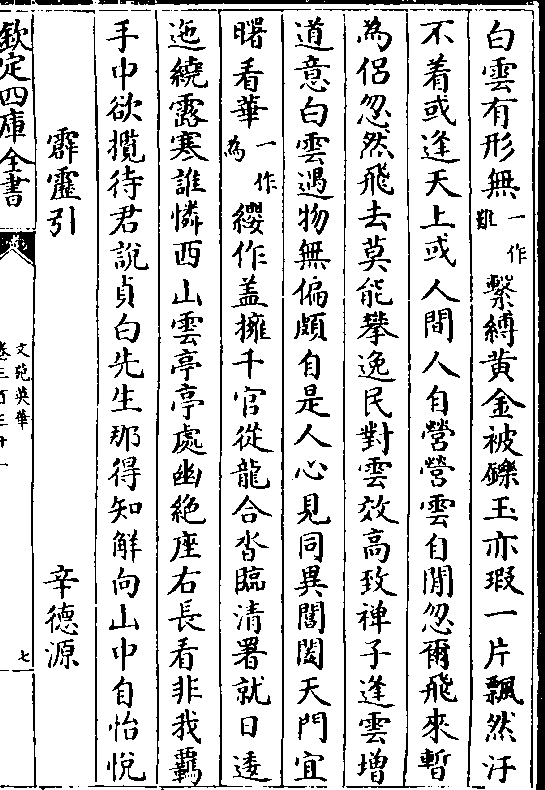 白雲有形無一作難繫縛黄金被鑠玉亦瑕一片飄然汙
不着或逢天上或人間人自營營雲自閒忽爾飛來暫
為侣忽然飛去莫能攀逸民對雲效高致禅子逢雲增
道意白雲遇物無偏頗自是人心見同異閶闔天門宜
曙看華一作為纓作盖擁千官從龍合沓臨清署就日逶
迤繞露寒誰憐西山雲亭亭處幽絶座右長看非我羈
手中欲攬待君説貞白先生那得知解向山中自怡悦
霹靂引
辛德源
欽定四庫全書
文苑英華
卷三百三十一
七